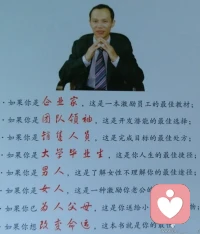 ·如果你是企业家，这是一本激励员工的最佳教材；
·如果你是团队领袖，这是开发潜能的最佳选择；
·如果你是销售人员，这是完成目标的最佳处方；
·如果你是大学毕业生，这是你人生的最佳途径；
·如果你是男人，这是了解女性不理解你的最佳途径；
·如果你是女人，这是一种激励你老公的
·如果你已为人父母，这是你送给小
·如果你想改变命运，这本书就是你的最佳